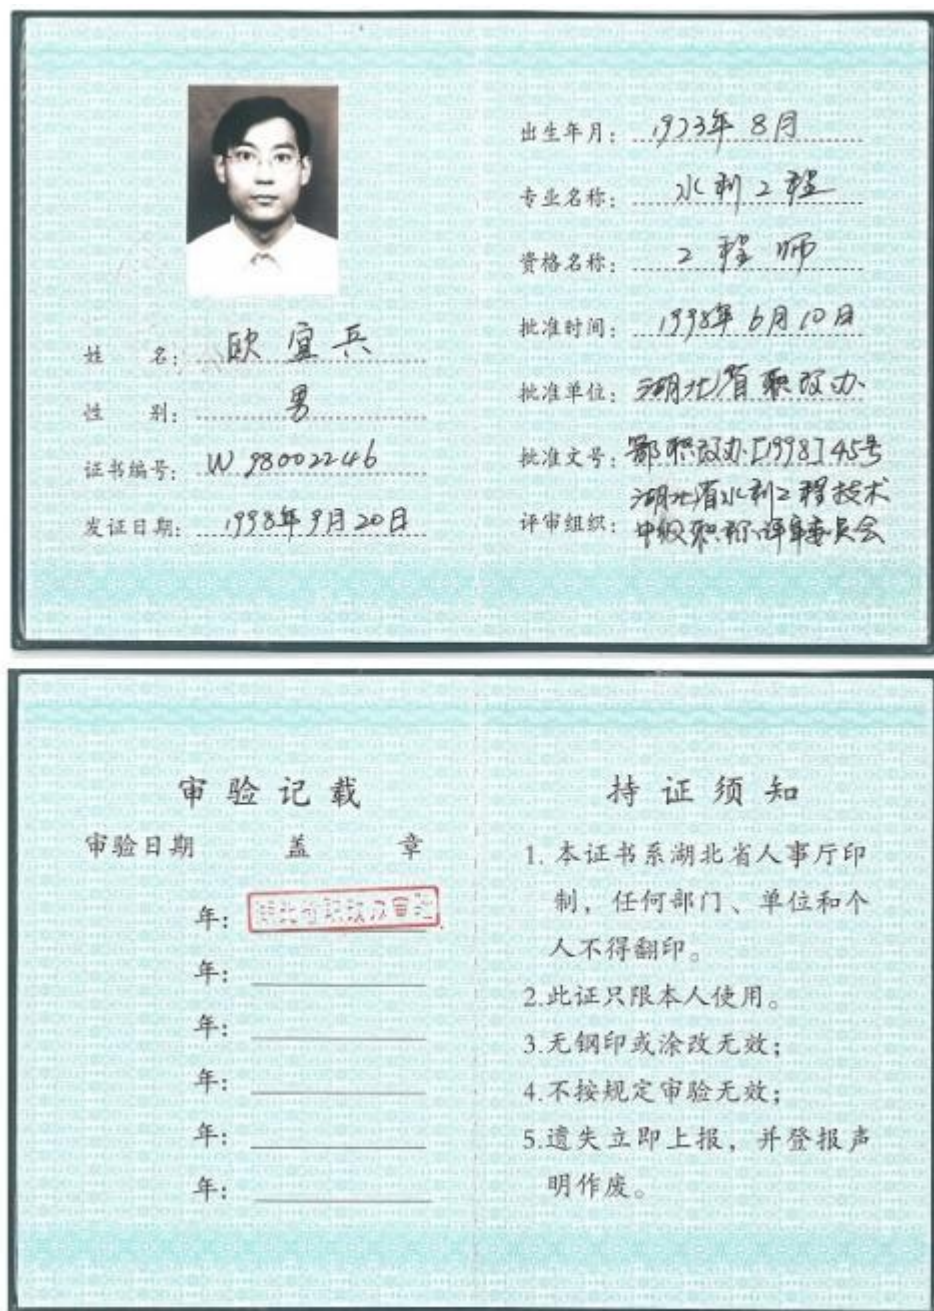 姓 名: 欧宜兵
性 别: 男
证书编号: W 98002246
发证日期: 1998年9月20日
出生年月: 1973年 8月
专业名称: 水利工程
资格名称: 工程师
批准时间: 1998年6月10日
批准单位: 湖北省职改办
批准文号: 鄂职改办[1998]45号
评审组织: 湖北省水利工程技术
中级职称评审委员会
审验记载
审验日期 盖 章
年: 湖北省职改办审验
年:
年:
年:
年:
年:
持证须知
1. 本证书系湖北省人事厅印
制，任何部门、单位和个
人不得翻印。
2.此证只限本人使用。
3.无钢印或涂改无效；
4.不按规定审验无效；
5.遗失立即上报，并登报声
明作废。